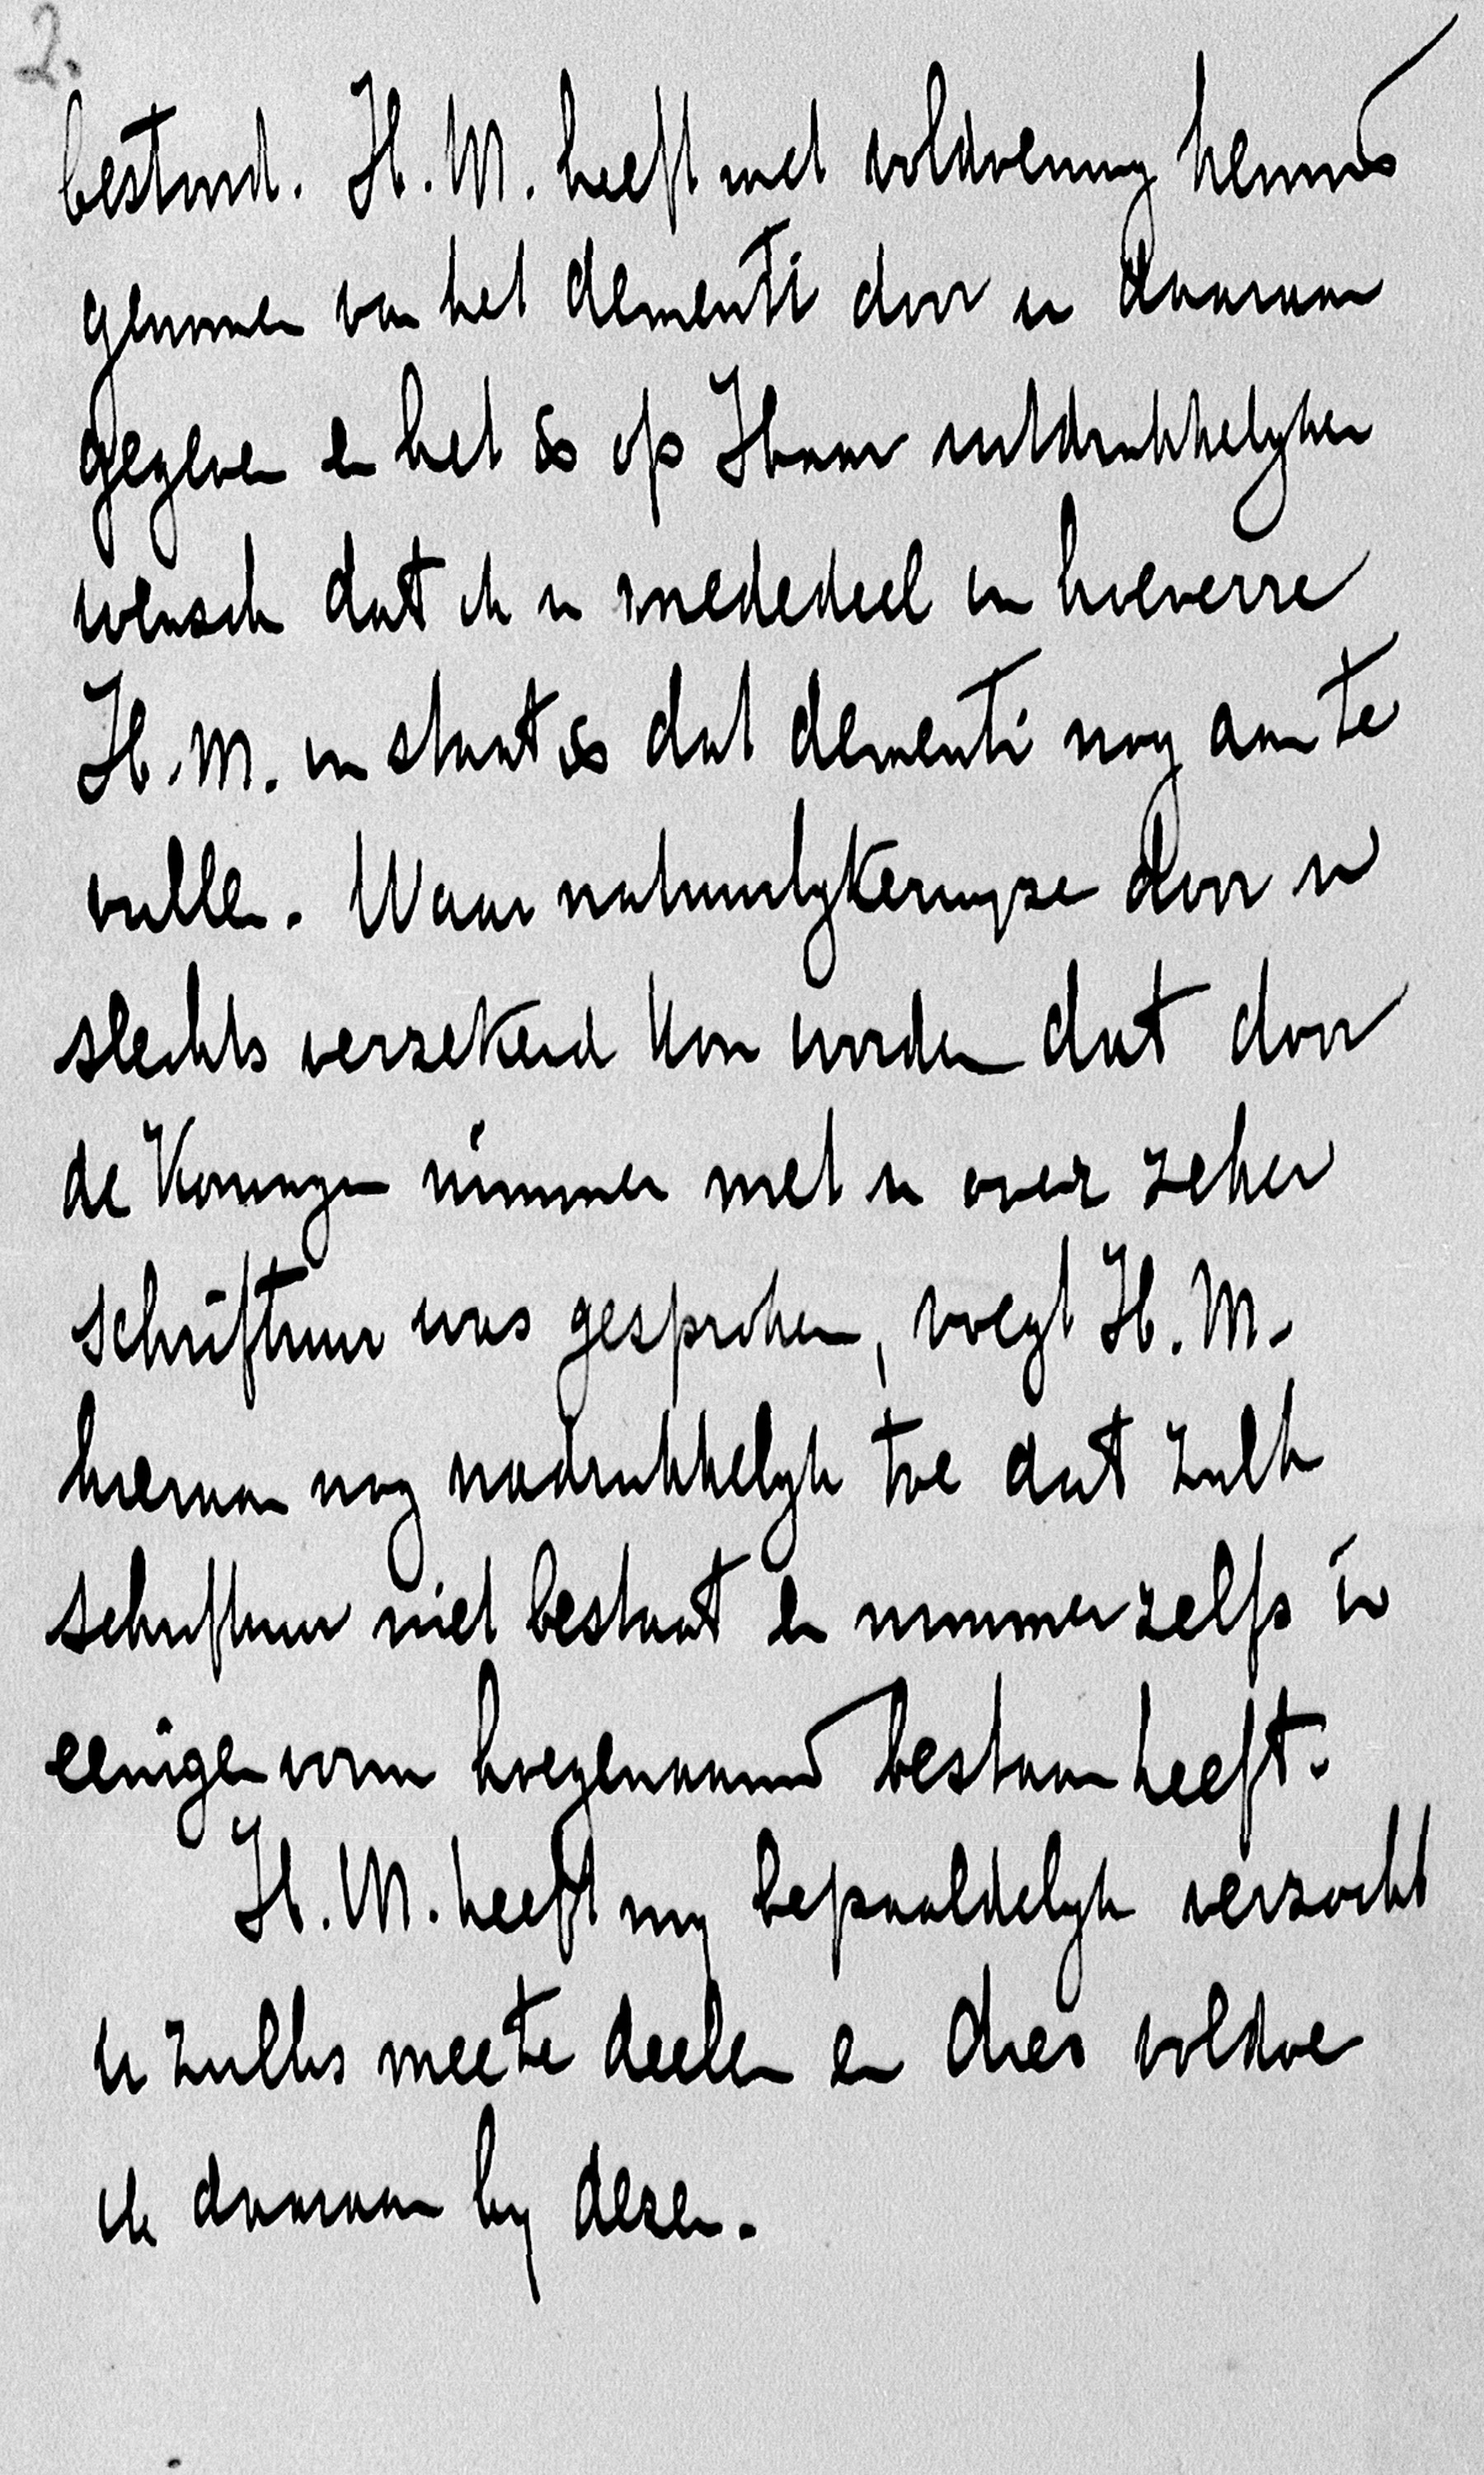 2.
bestond. H. M. heeft met voldoening kennis
genomen van het dementi door u daaraan
gegeven en het is op Haar uitdrukkelyken
wensch dat ik u mededeel in hoeverre
H. M. in staat is dat dementi nog aan te
vullen. Waar natuurlykerwyze door u
slechts verzekerd kon worden dat door
de Koningin nimmer met u over zeker
schriftuur was gesproken, voegt H. M.
hieraan nog nadrukkelyk toe dat zulk
schriftuur niet bestaat en nimmer zelfs in
eenigen vorm hoegenaamd bestaan heeft.
H. M. heeft my bepaaldelyk verzocht
u zulks mee te deelen en dies voldoe
ik daaraan by dezen.